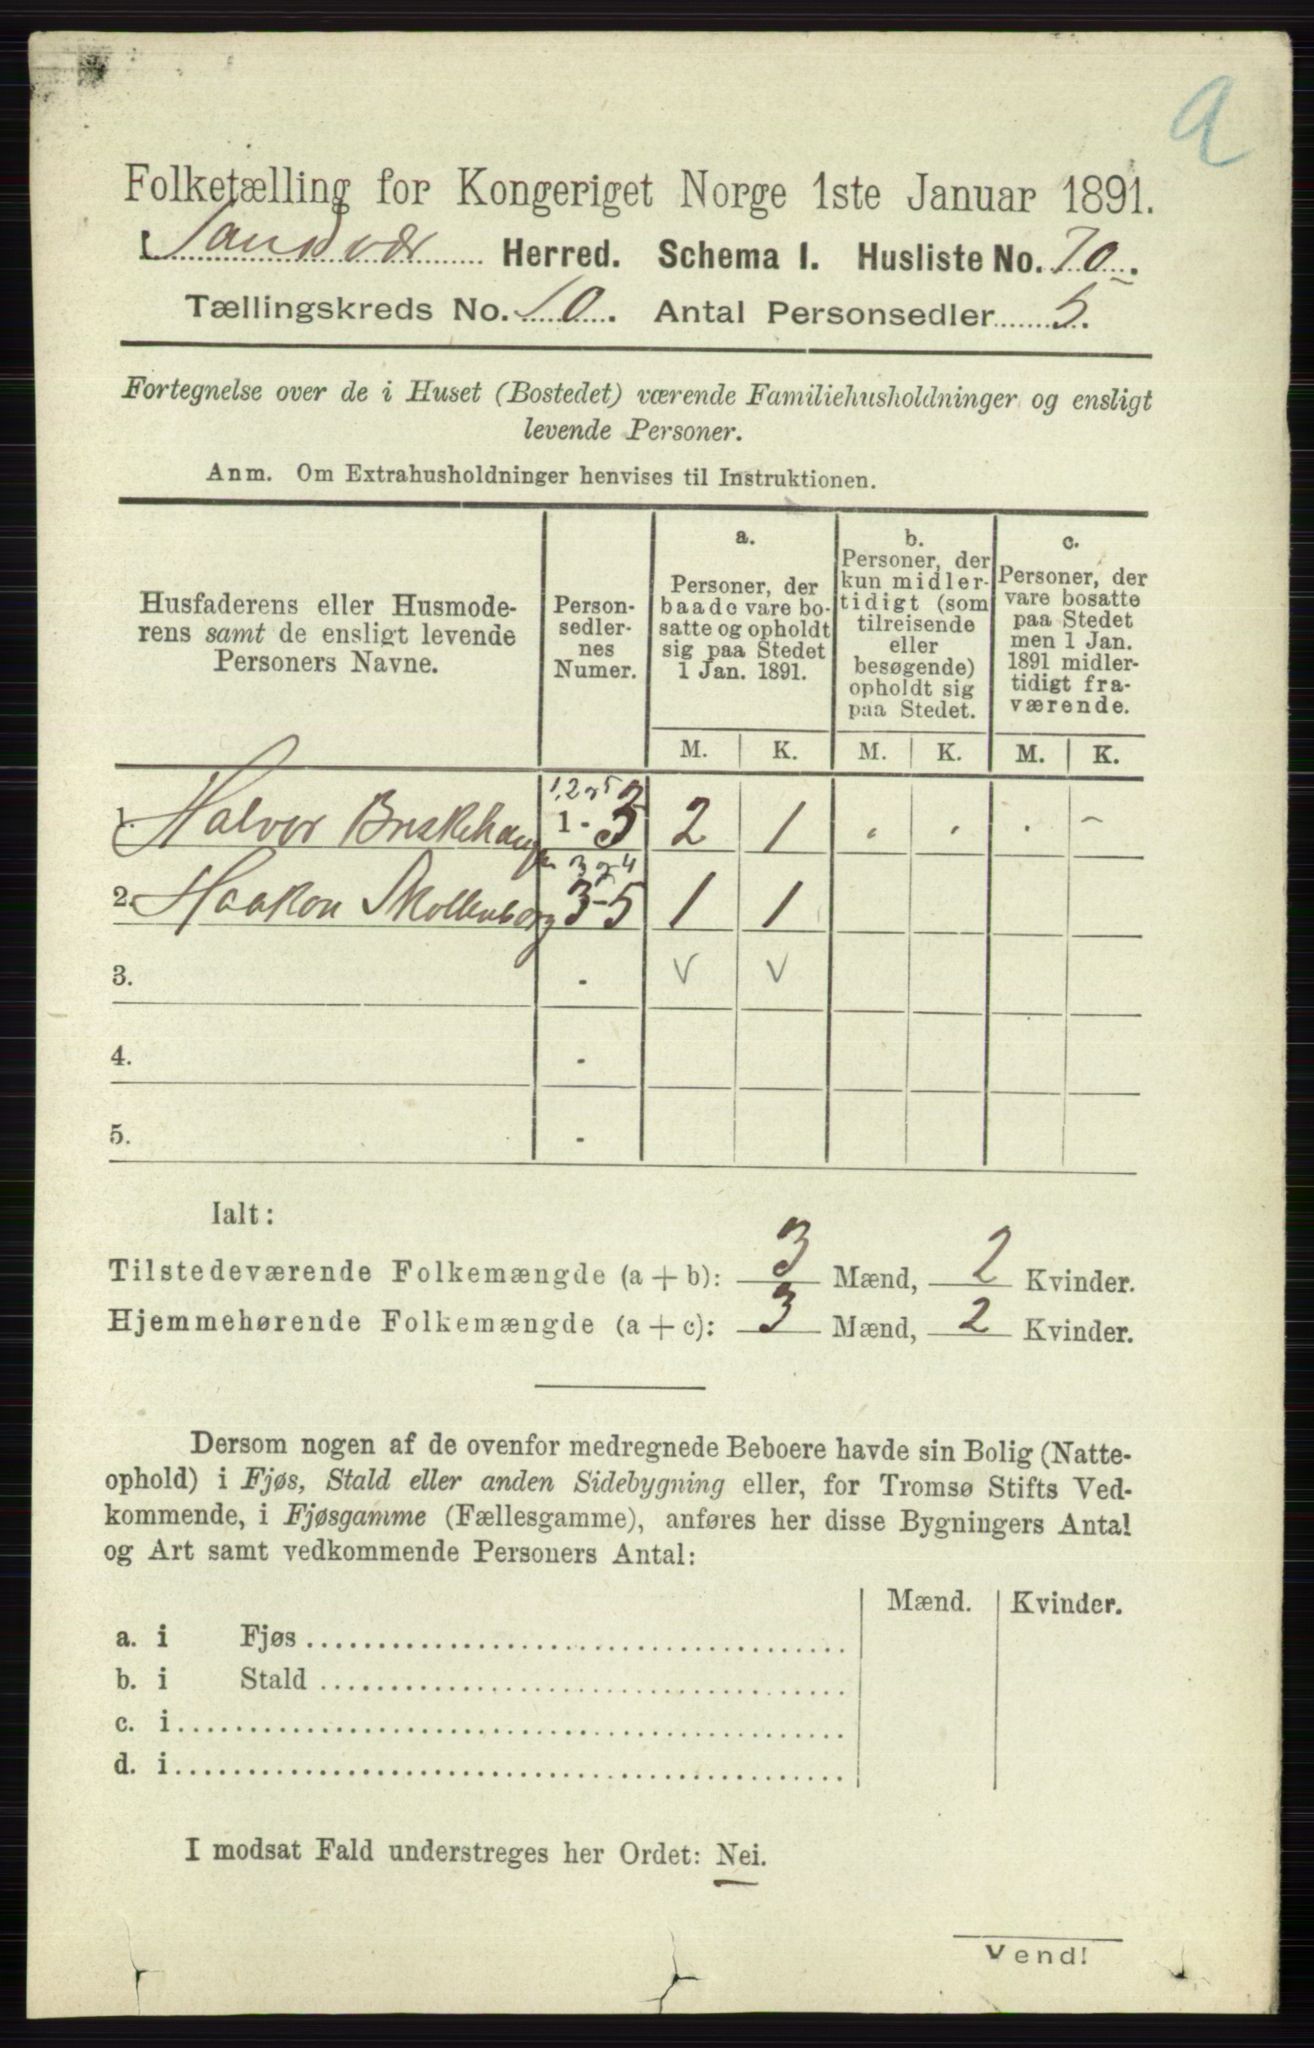 a
Folketælling for Kongeriget Norge 1ste Januar 1891.
Sandsvær Herred. Schema I. Husliste No. 70.
Tællingskreds No. 10. Antal Personsedler 5.
Fortegnelse over de i Huset (Bostedet) værende Familiehusholdninger og ensligt
levende Personer.
Anm. Om Extrahusholdninger henvises til Instruktionen.
Husfaderens eller Husmode-
rens samt de ensligt levende
Personers Navne.
Person-
sedler-
nes
Numer.
a.
Personer, der
baade vare bo-
satte og opholdt
sig paa Stedet
1 Jan. 1891.
b.
Personer, der
kun midler-
tidigt (som
tilreisende
eller
besøgende)
opholdt sig
paa Stedet.
c.
Personer, der
vare bosatte
paa Stedet
men 1 Jan.
1891 midler-
tidigt fra-
værende.
M. K. M. K. M. K.
1,2 og 5
1. Halvor Briskehaugen 1 - 3 2 1 . . . -
3 og 4
2. Haakon Skollenborg 3-5 1 1
3. - v v
4. -
5. -
Ialt:
Tilstedeværende Folkemængde (a + b): 3 Mænd, 2 Kvinder.
Hjemmehørende Folkemængde (a + c): 3 Mænd, 2 Kvinder.
Dersom nogen af de ovenfor medregnede Beboere havde sin Bolig (Natte-
ophold) i Fjøs, Stald eller anden Sidebygning eller, for Tromsø Stifts Ved-
kommende, i Fjøsgamme (Fællesgamme), anføres her disse Bygningers Antal
og Art samt vedkommende Personers Antal:
Mænd. Kvinder.
a. i Fjøs
b. i Stald
c. i
d. i
I modsat Fald understreges her Ordet: Nei.
Vend!